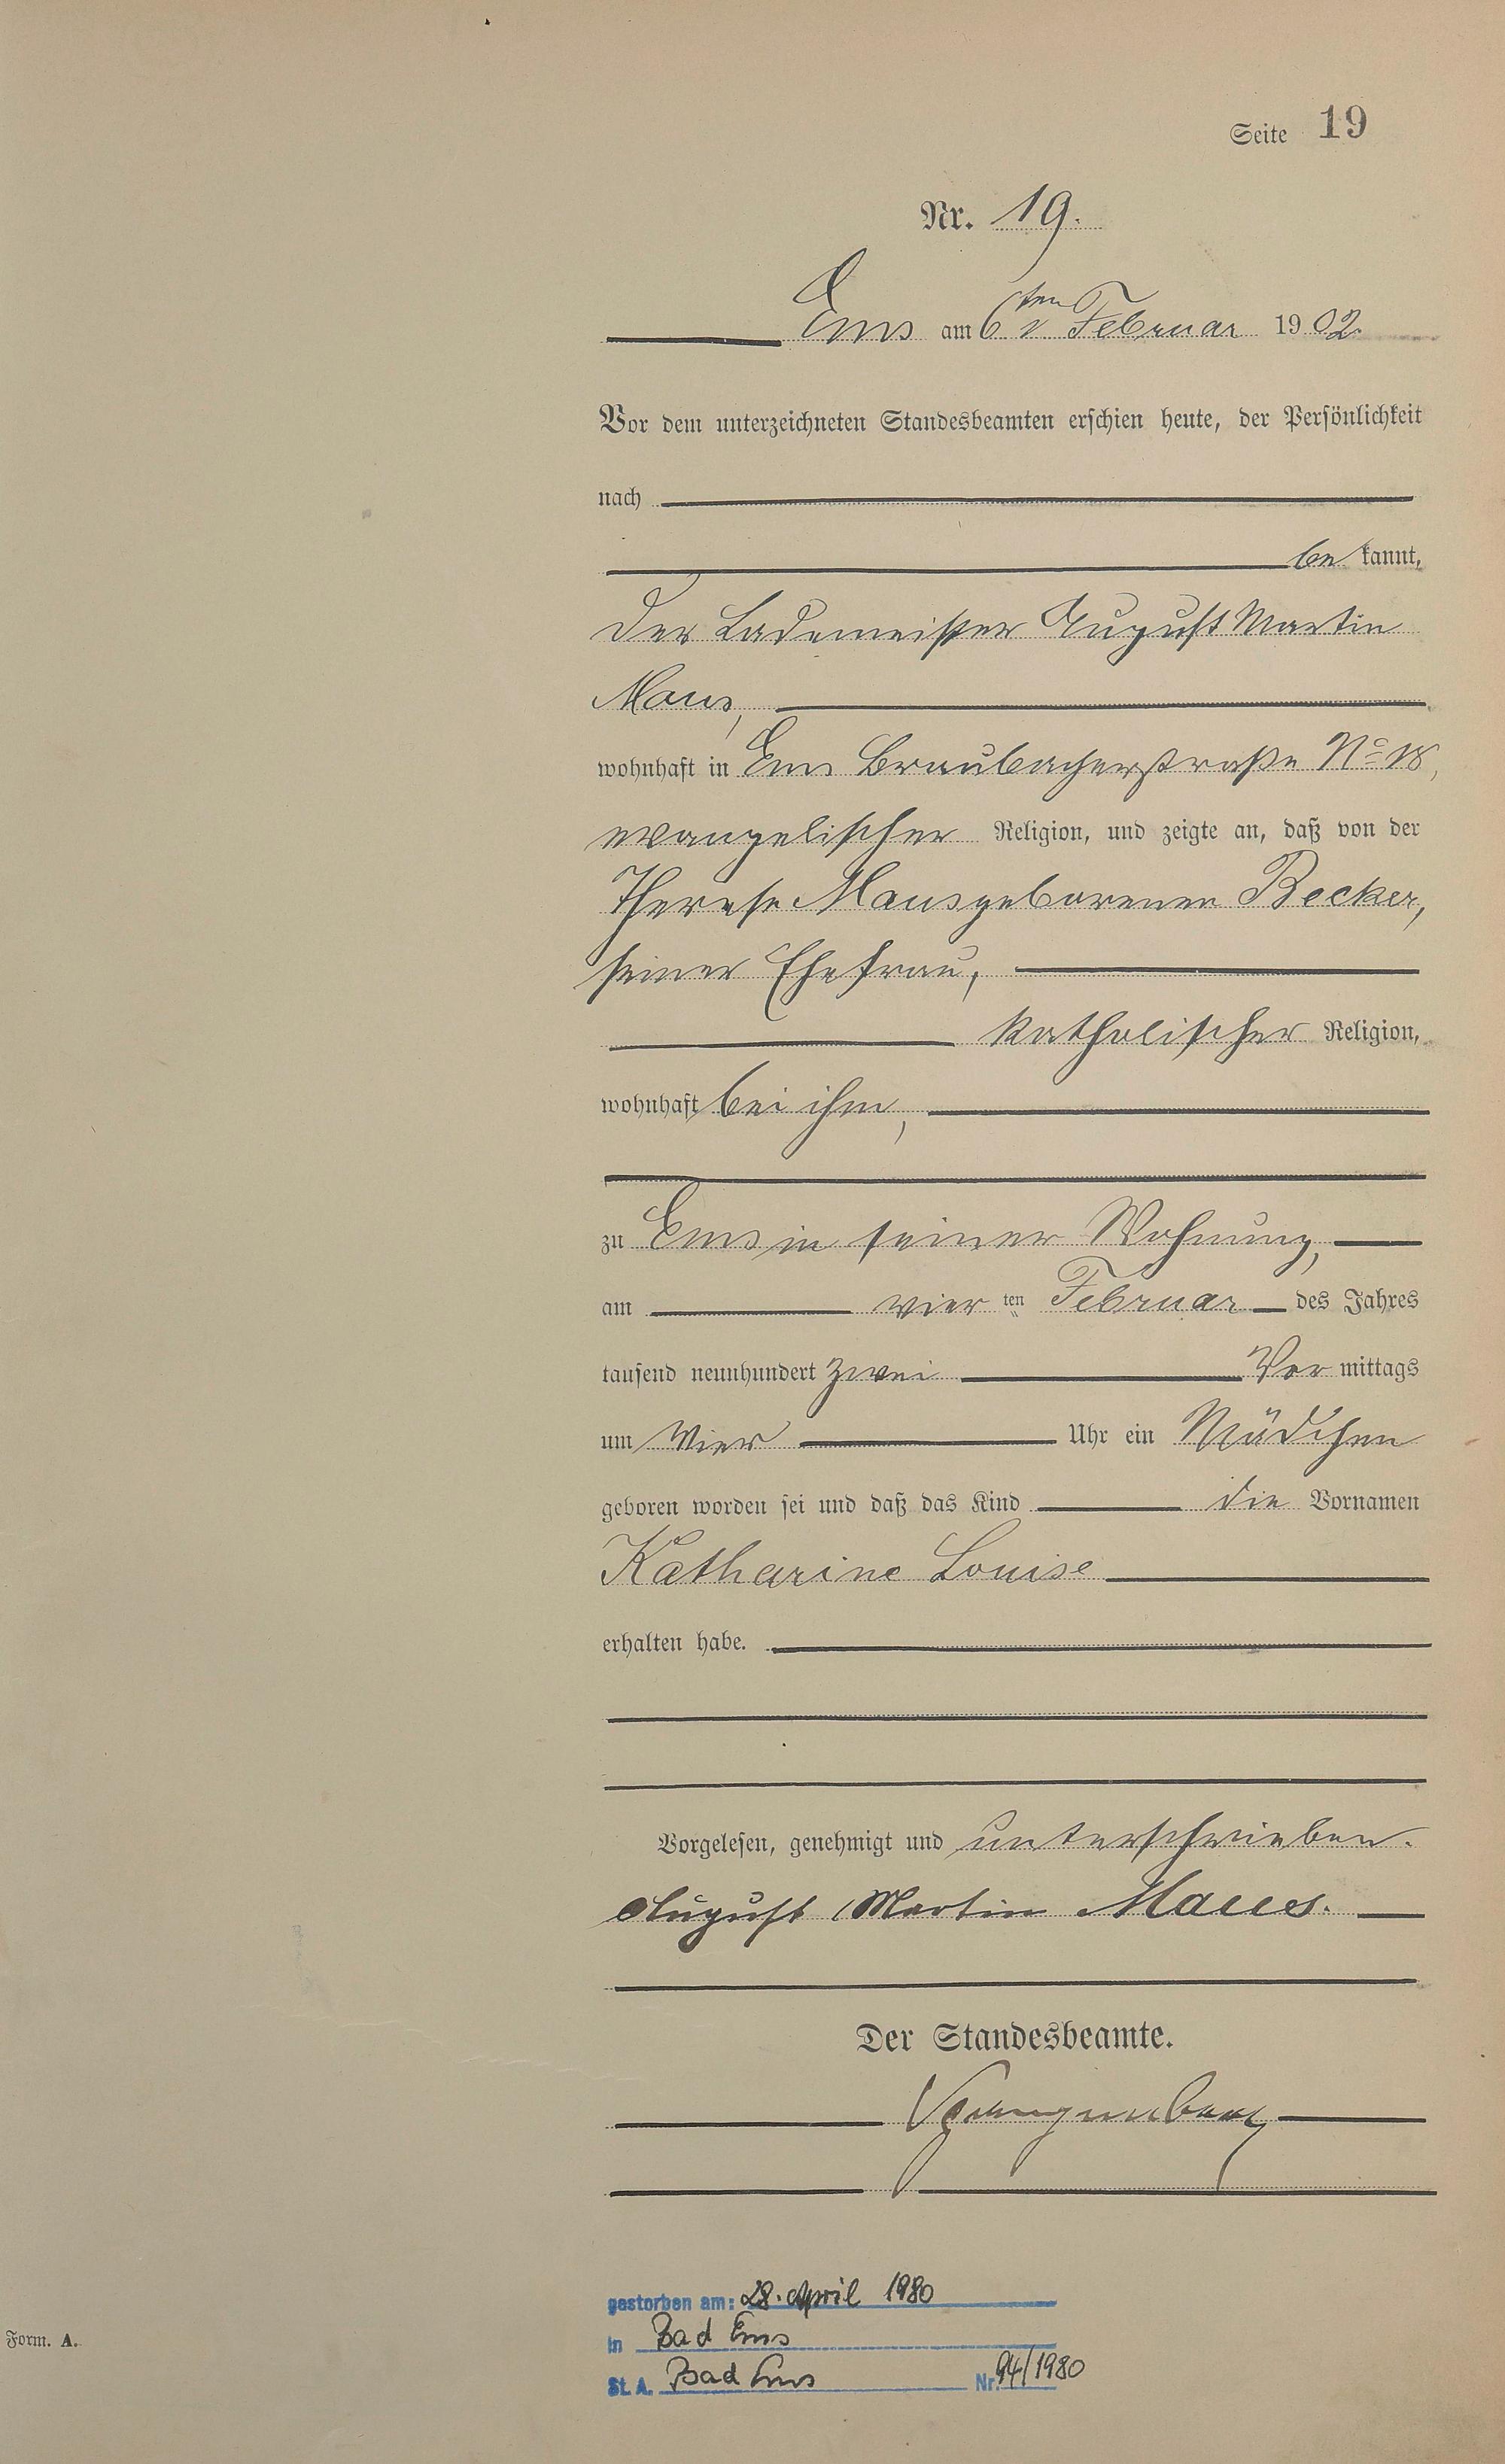 Seite 19
Nr. 19.
Ems am 6ten Februar 1902.
Vor dem unterzeichneten Standesbeamten erschien heute, der Persönlichkeit
nach
be kannt,
der Lademeister August Martin
Maus,
wohnhaft in Ems Braubacherstraße No 18,
evangelischer Religion, und zeigte an, daß von der
Therese Maus geborenen Becker,
seiner Ehefrau,
katholischer Religion,
wohnhaft bei ihm,
zu Ems in seiner Wohnung,
am vier ten Februar des Jahres
tausend neunhundert zwei Vor mittags
um vier Uhr ein Mädchen
geboren worden sei und daß das Kind die Vornamen
Katharine Louise
erhalten habe.
Vorgelesen, genehmigt und unterschrieben.
August Martin Maus.
Der Standesbeamte.
gestorben am: 28. April 1980
in Bad Ems
St. A. Bad Ems Nr. 94/1980
Form. A.